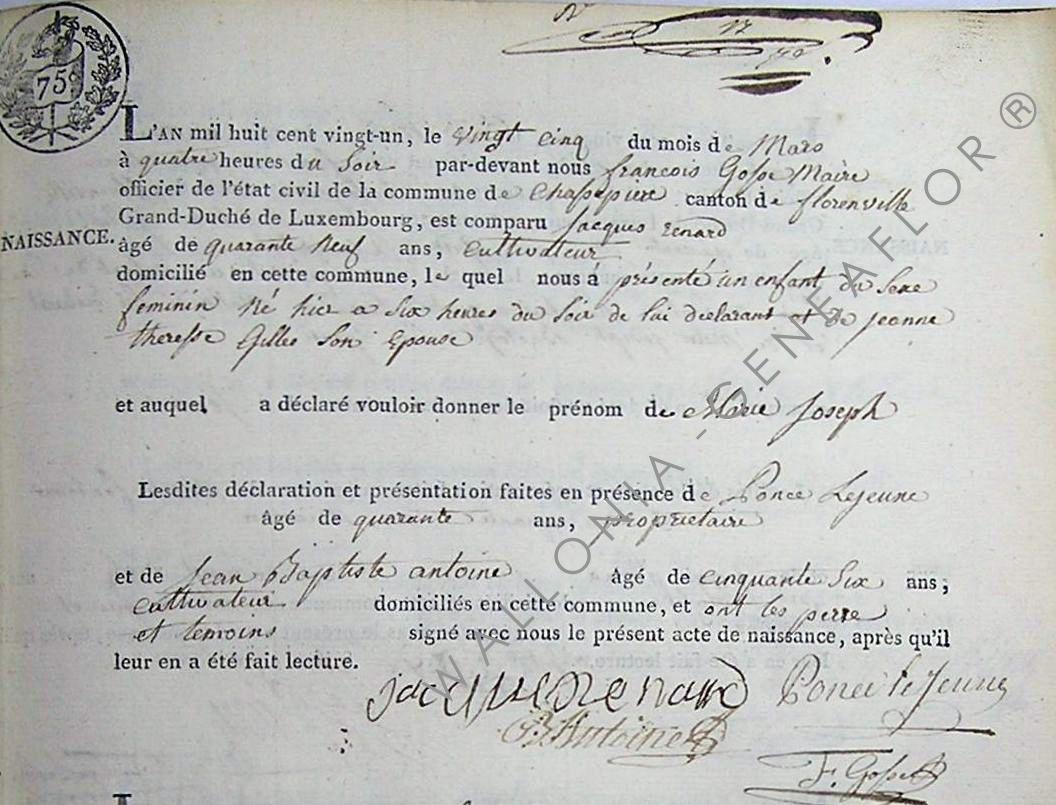 75c
L'AN mil huit cent vingt-un, le vingt cinq du mois de Mars
à quatre heures du Soir par-devant nous francois Gosse Maire
officier de l'état civil de la commune de Chassepierre canton de florenville
Grand-Duché de Luxembourg, est comparu Jacques renard
NAISSANCE.
âgé de quarante Neuf ans, cultivateur
domicilié en cette commune, le quel nous à présenté un enfant du Sexe
feminin Né hier a Six heures du Soir de lui declarant et de jeanne
theresse Gilles Son Epouse
et auquel a déclaré vouloir donner le prénom de Marie Joseph
Lesdites déclaration et présentation faites en présence de Ponce Lejeune
âgé de quarante ans, proprietaire
et de Jean Baptiste antoine âgé de cinquante Six ans,
cultivateur domiciliés en cette commune, et ont les perre
et temoins signé avec nous le présent acte de naissance, après qu'il
leur en a été fait lecture.
jacque Renard Ponce le Jeune
B Antoine
F. Gosse
WALLONIA-GENEAFLOR ®